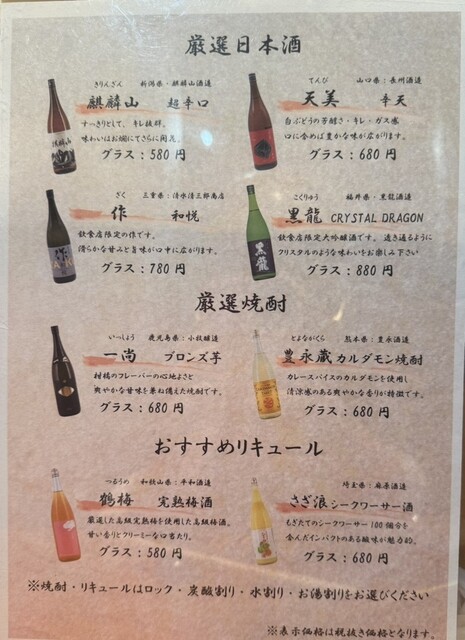 厳選日本酒
きりんざん 新潟県・麒麟山酒造
麒麟山 超辛口
すっきりとして、キレ抜群。
味わいはお燗にてさらに開花。
グラス：580円
てんび 山口県：長州酒造
天美 辛天
白ぶどうの芳醇さ・キレ・ガス感
口に含めば豊かな味が広がります。
グラス：680円
ざく 三重県：清水清三郎商店
作 和悦
飲食店限定の作です。
滑らかな甘みと旨味が口中に広がります。
グラス：780円
こくりゅう 福井県・黒龍酒造
黒龍 CRYSTAL DRAGON
飲食店限定大吟醸酒です。透き通るように
クリスタルのような味わいをお楽しみ下さい
グラス：880円
厳選焼酎
いっしょう 鹿児島県：小牧醸造
一尚 ブロンズ芋
柑橘のフレーバーの心地よさと
爽やかな甘味を兼ね備えた焼酎です。
グラス：680円
とよながくら 熊本県：豊永酒造
豊永蔵 カルダモン焼酎
カレースパイスのカルダモンを使用し
清涼感のある爽やかな香りが特徴です。
グラス：680円
おすすめリキュール
つるうめ 和歌山県：平和酒造
鶴梅 完熟梅酒
厳選した高級完熟梅を使用した高級梅酒。
甘い香りとクリーミーな口当たり。
グラス：580円
埼玉県：麻原酒造
さざ浪シークワーサー酒
もぎたてのシークワーサー100個分を
含んだインパクトのある酸味が魅力的。
グラス：680円
※焼酎・リキュールはロック・炭酸割り・水割り・お湯割りをお選びください
※表示価格は税抜き価格となります。